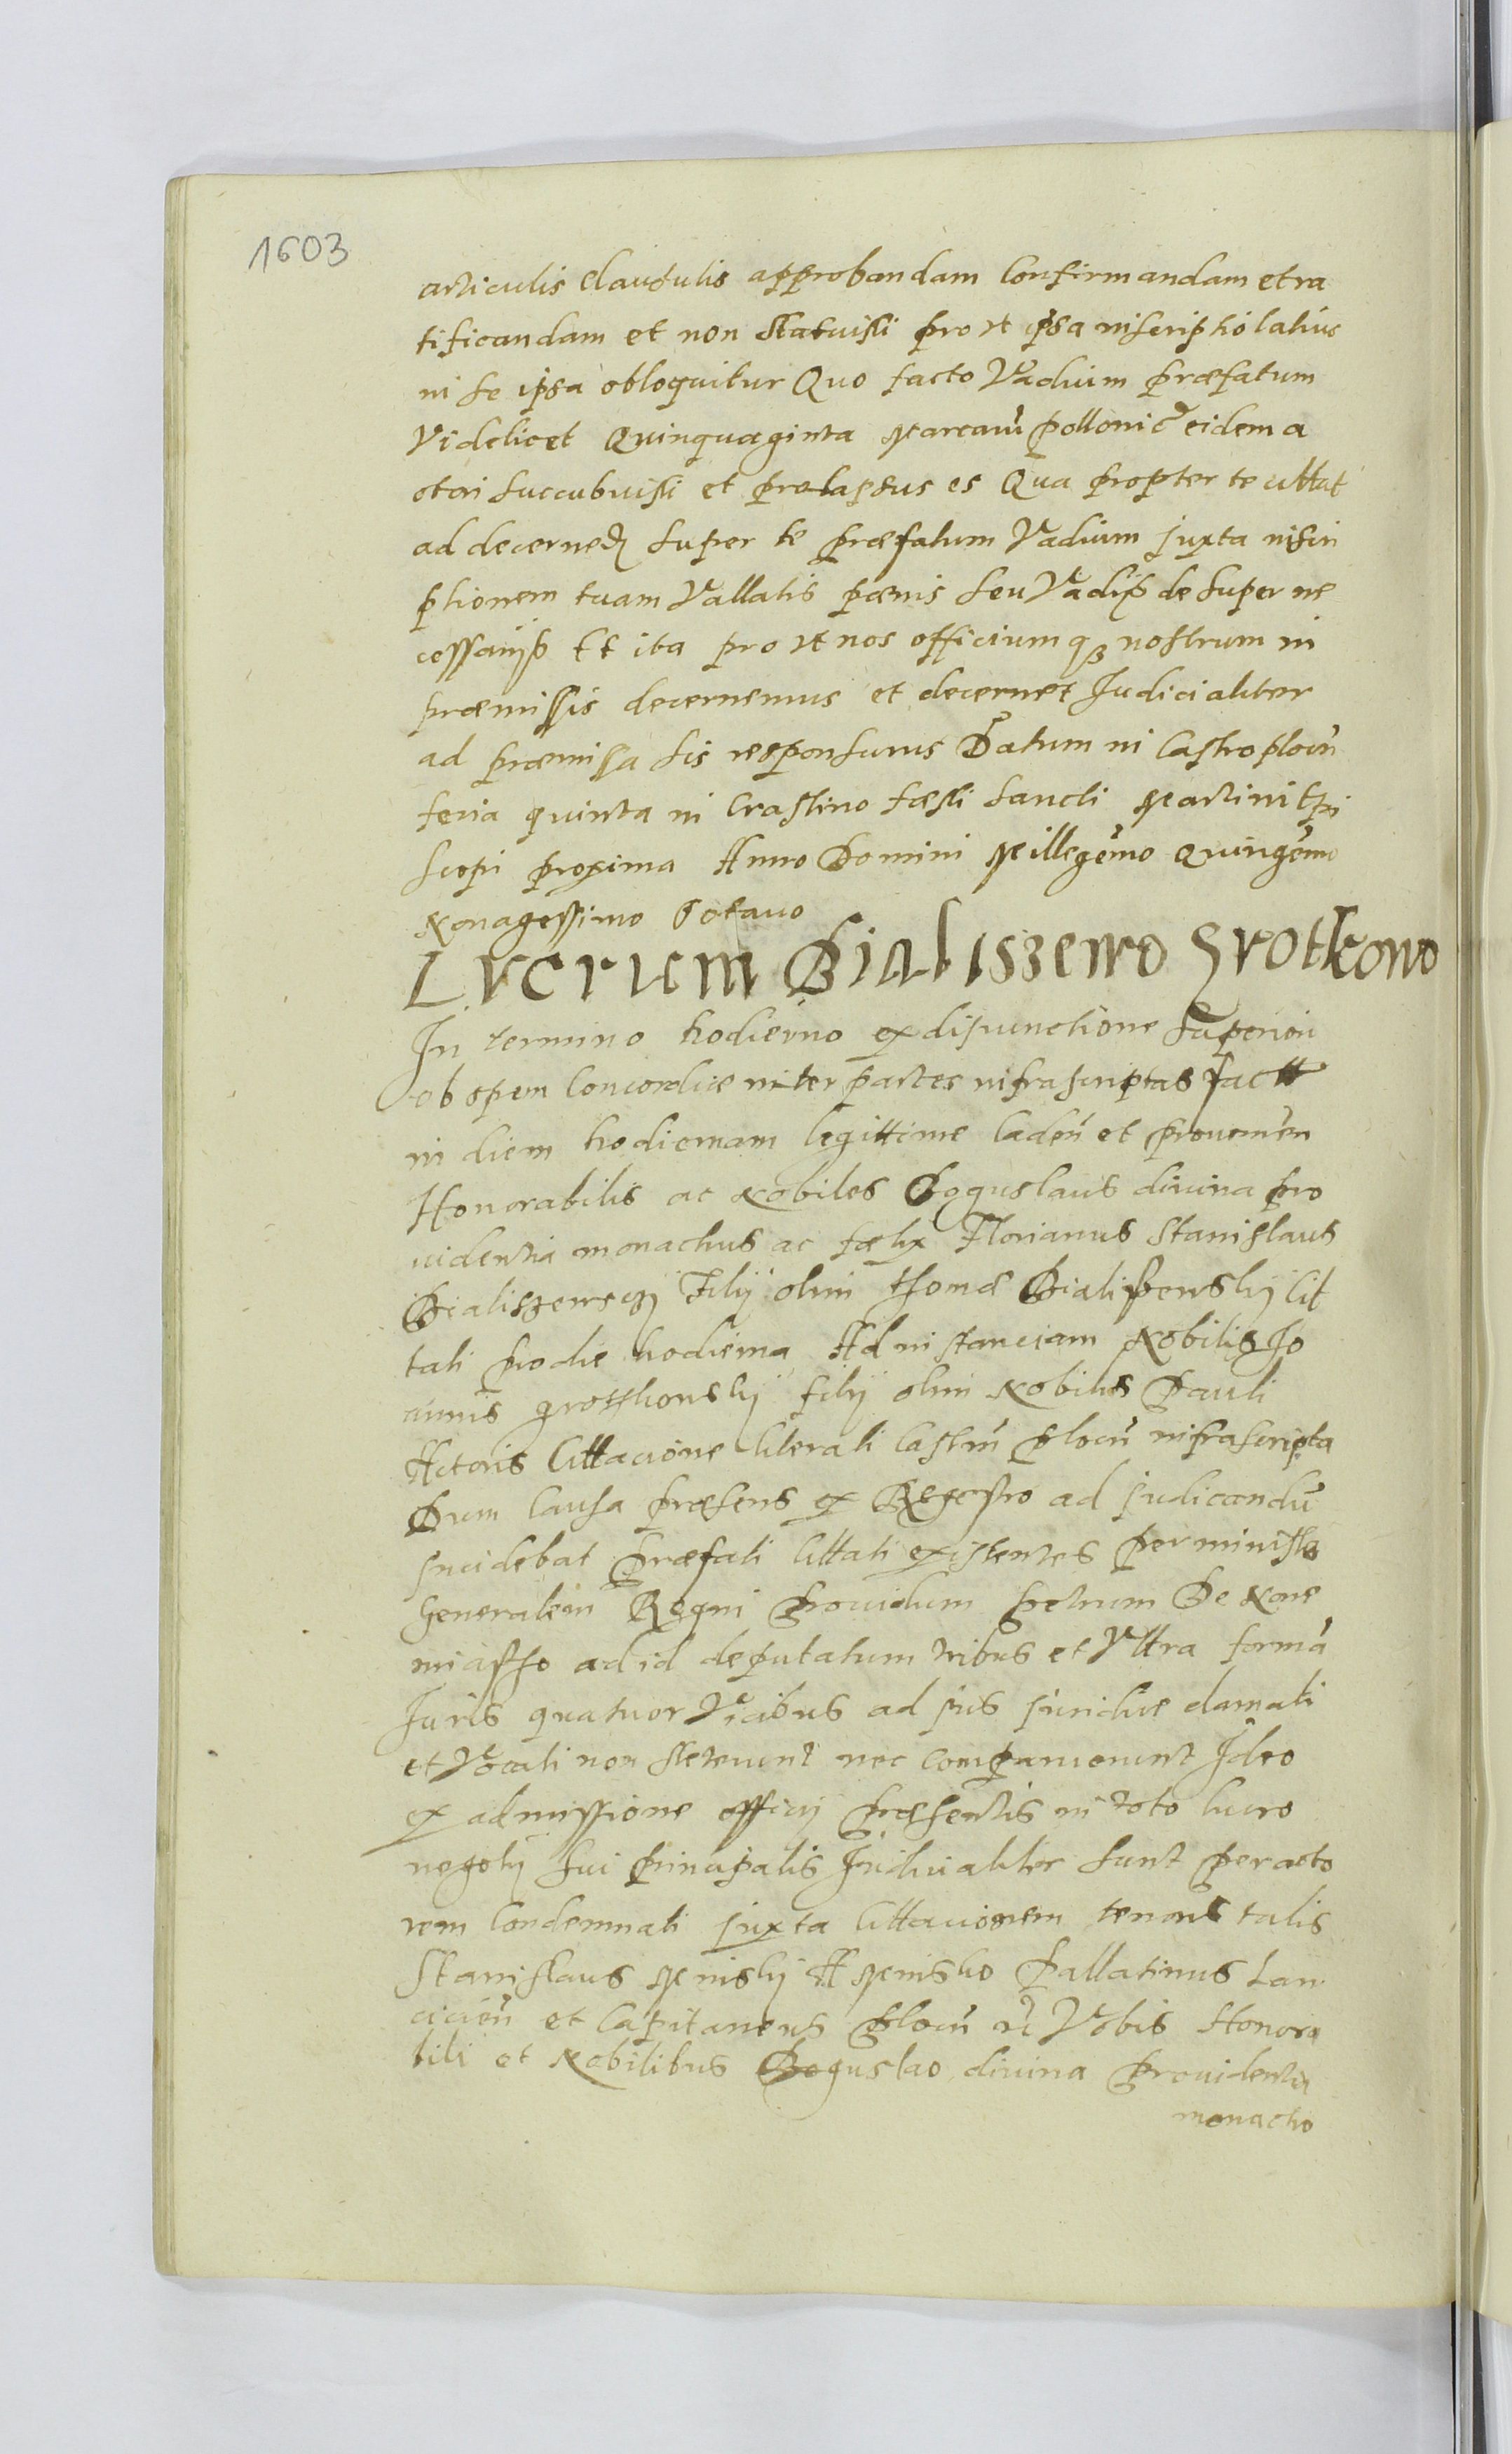 1603
articulis Clausulis approbandam Confirmandam et ra
tificandam et non Statuisti pro vt ipsa inscriptio latius
in se ipsa obloquitur Quo facto Vadium præfatum
Videlicet Quinquaginta Marcarũ pollonic eidem a
ctori succubuisti et prolapsus es Qua propter te cittat
ad decerned super te præfatum Vadium juxta inscri
ptionem tuam Vallatis pænis seu Vadijs de super ne
cessarijs Et ita pro vt nos officium qȝ nostrum in
præmissis decernemus et decernet Judicialiter
ad præmissa sis responsurus Datum in Castro plocñ
feria quinta in Crastino fæsti sancti Martini Epi
scopi proxima Anno Domini Millegẽmo Quingẽmo
Nonagessimo Octauo
Lvcrvm Bialiszewo Grotkowo
In termino hodierno ex disiunctione superiori
ob spem Concordiæ inter partes infrascriptas fact
in diem hodiernam legittime Cadeñ et proueniẽn
Honorabilis ac Nobiles Boguslaus diuina pro
uidentia monachus ac fælix Florianus Stanislaus
Bialiszewsczy Filij olim Thomæ Bialiszewskij Cit
tati pro die hodierna Ad instanciam Nobilis Jo
annis Grotkowskij filij olim Nobilis Pauli
Actoris Cittacione literali Castrñ Plocñ infrascripta
Dum Causa præsens ex Regestro ad judicandũ
incidebat Præfati Cittati existentes per ministr
Generalem Regni Prouidum Petrum De Nowe
miasto ad id deputatum tribus et Vltra formã
Juris quatuor Vicibus ad jus juridice clamati
et Vocati non steterunt nec comparuerunt Ideo
ex admissione officij Præsentis in toto lucro
negotij sui principalis Judicialiter sunt per acto
rem Condemnati juxta Cittacionem tenoris talis
Stanislaus Minskij A Minsko Pallatinus Lan
cicieñ et Capitaneus Plocñ vc Vobis Honora
bili et Nobilibus Boguslao diuina Prouidentia
monacho